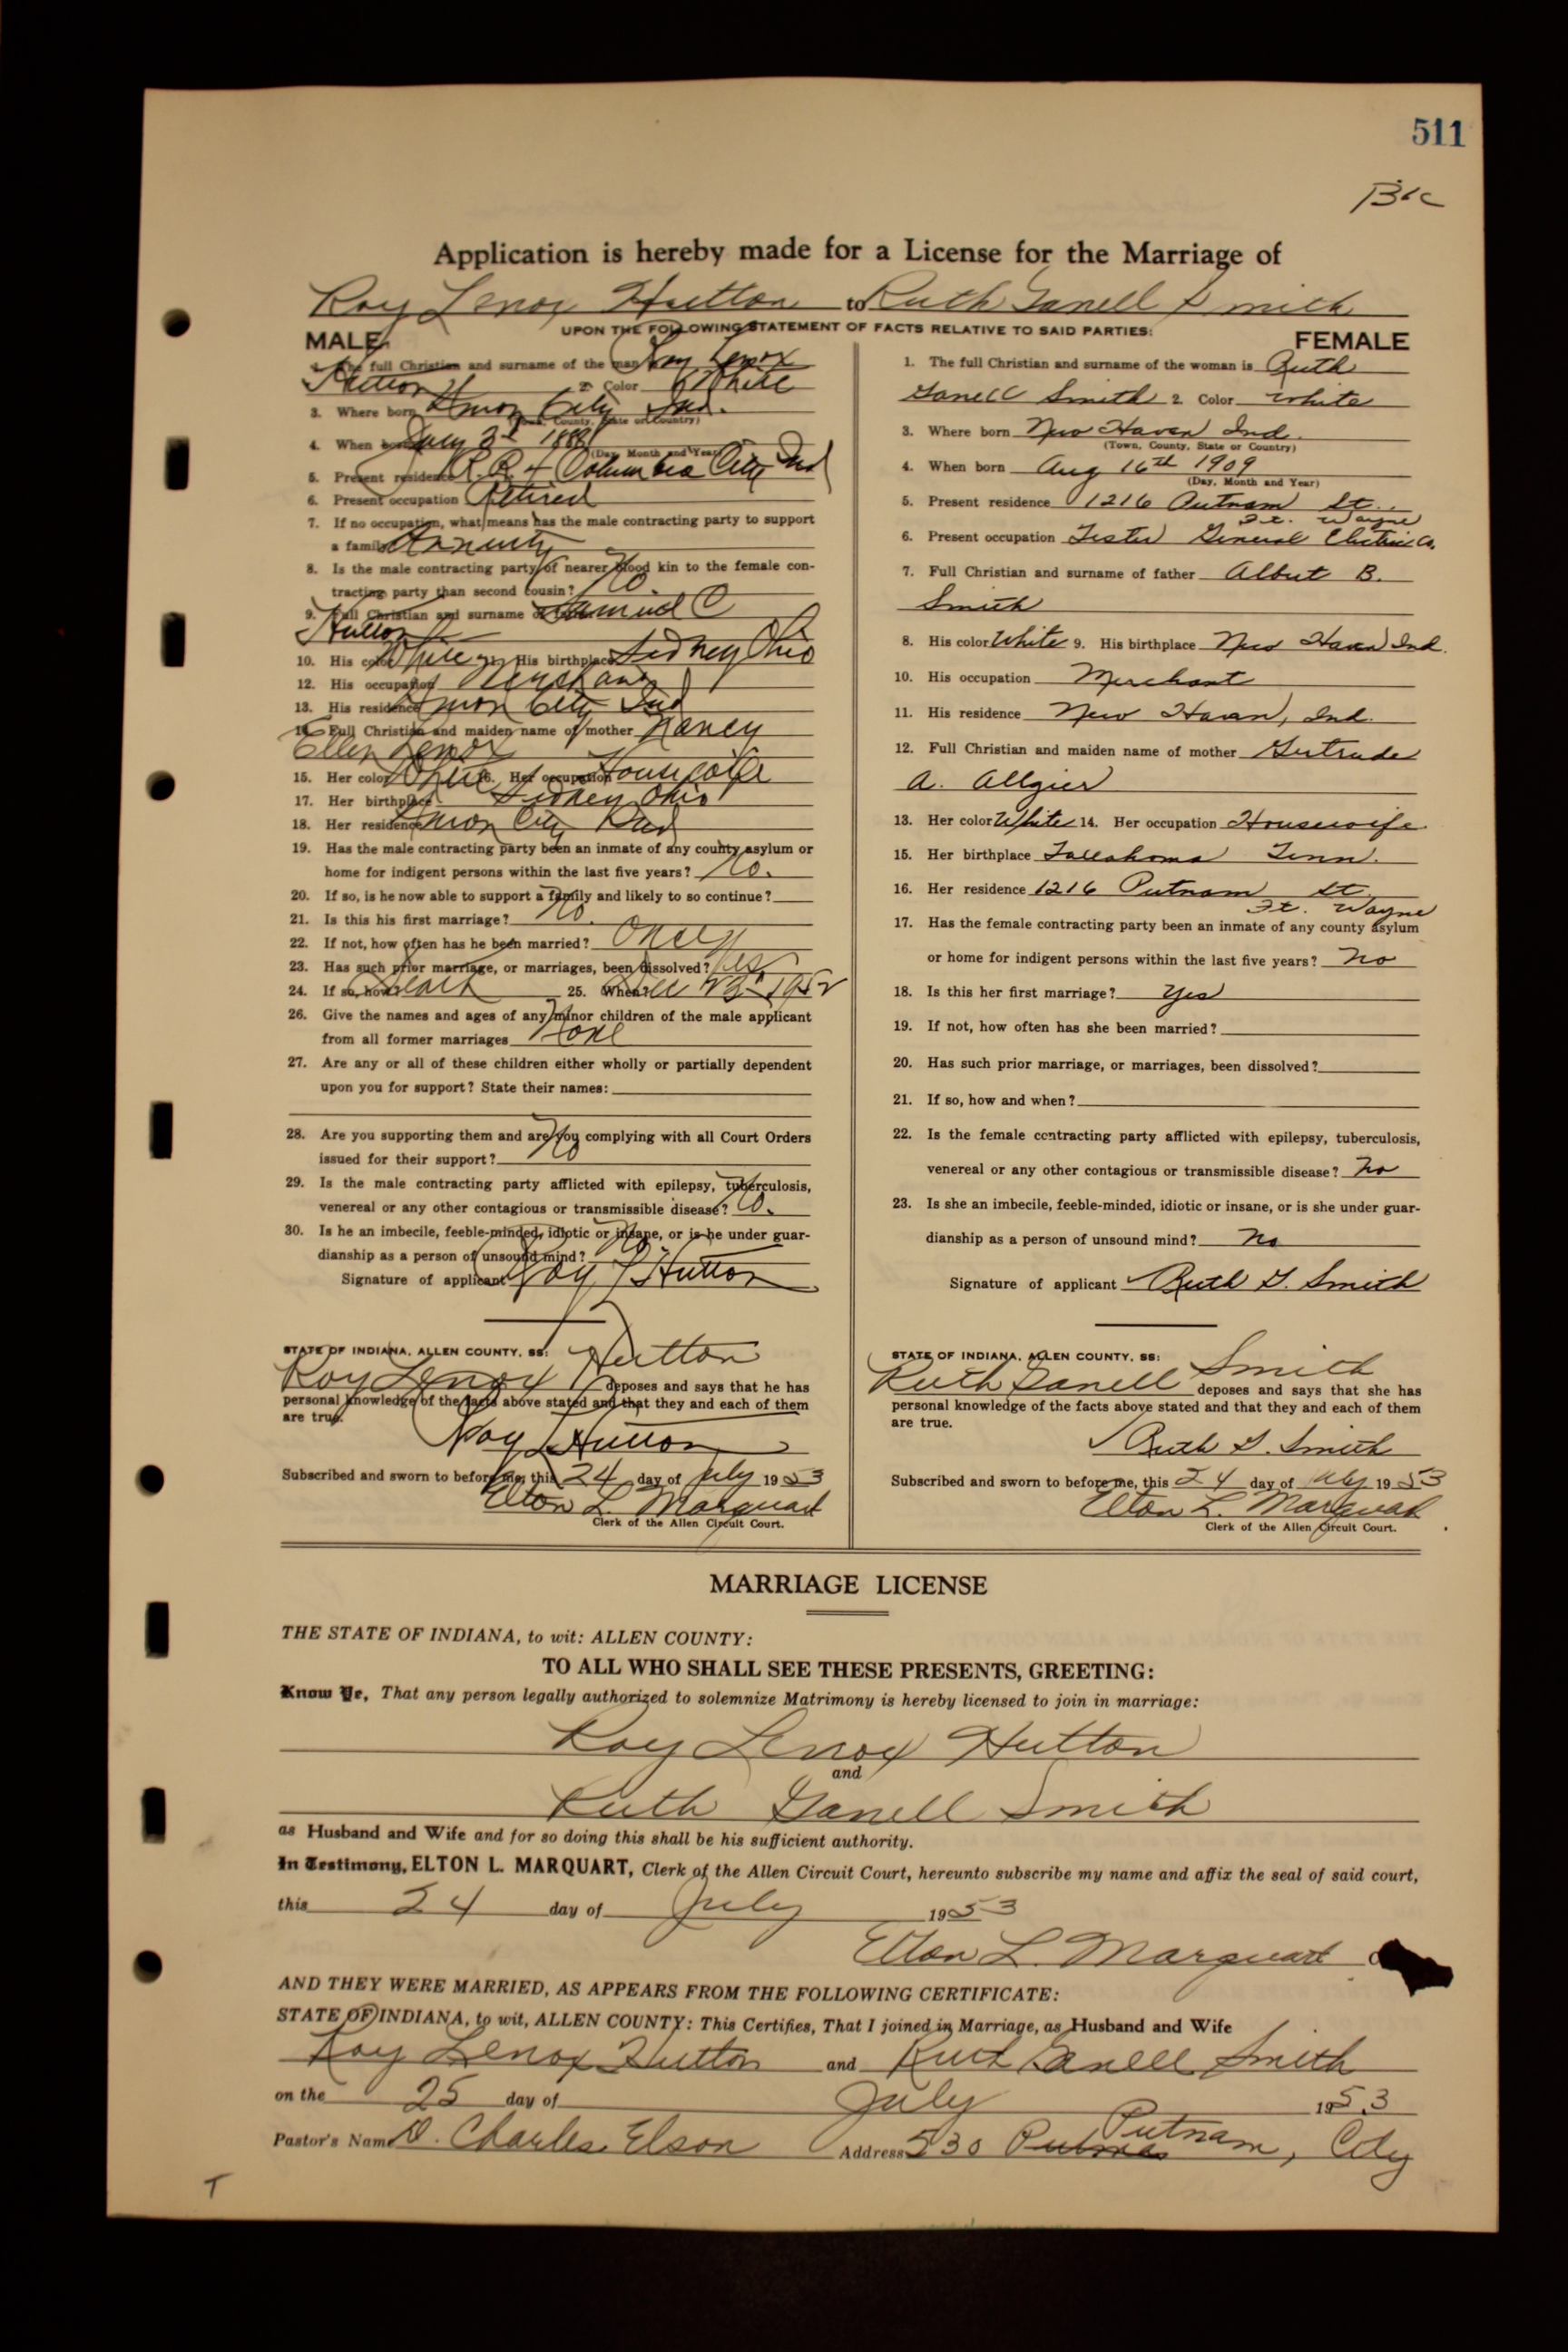 511
Application is hereby made for a License for the Marriage of
Roy Lenox Hutton to Ruth Janell Smith
UPON THE FOLLOWING STATEMENT OF FACTS RELATIVE TO SAID PARTIES:
MALE
full Christian and surname of the man Roy Lenox
Hutton 2. Color White
3. Where born Union City Ind.
(Town, County, State or Country)
4. When born July 3rd
(Day, Month and Year)
5. Present residence R.R. 4 Columbia City Ind
6. Present occupation Retired
7. If no occupation, what means has the male contracting party to support
a family Annuity
8. Is the male contracting party of nearer blood kin to the female con-
tracting party than second cousin? No
9. Full Christian and surname of Samuel C
Hutton
10. His color White 11. His birthplace Sidney Ohio
12. His occupation
13. His residence Union City Ind
14. Full Christian and maiden name of mother Nancy
Ellen Lenox
15. Her color White 16. Her occupation Housewife
17. Her birthplace Sidney Ohio
18. Her residence Union City Ind
19. Has the male contracting party been an inmate of any county asylum or
home for indigent persons within the last five years? No.
20. If so, is he now able to support a family and likely to so continue?
21. Is this his first marriage? No.
22. If not, how often has he been married? Once
23. Has such prior marriage, or marriages, been dissolved? Yes
24. If so, how? Death 25. When? 1952
26. Give the names and ages of any minor children of the male applicant
from all former marriages None
27. Are any or all of these children either wholly or partially dependent
upon you for support? State their names:
28. Are you supporting them and are you complying with all Court Orders
issued for their support? No
29. Is the male contracting party afflicted with epilepsy, tuberculosis,
venereal or any other contagious or transmissible disease? No.
30. Is he an imbecile, feeble-minded, idiotic or insane, or is he under guar-
dianship as a person of unsound mind? No.
Signature of applicant Roy L Hutton
STATE OF INDIANA, ALLEN COUNTY, SS: Hutton
Roy Lenox deposes and says that he has
personal knowledge of the facts above stated and that they and each of them
are true.
Roy L Hutton
Subscribed and sworn to before me, this 24 day of July 1953
Elton L. Marquart
Clerk of the Allen Circuit Court.
FEMALE
1. The full Christian and surname of the woman is Ruth
Janell Smith 2. Color White
3. Where born New Haven Ind.
(Town, County, State or Country)
4. When born Aug 16th 1909
(Day, Month and Year)
5. Present residence 1216 Putnam St.
Ft. Wayne
6. Present occupation Tester General Electric Co.
7. Full Christian and surname of father Albert B.
Smith
8. His color White 9. His birthplace New Haven Ind.
10. His occupation Merchant
11. His residence New Haven, Ind.
12. Full Christian and maiden name of mother Gertrude
A. Allgier
13. Her color White 14. Her occupation Housewife
15. Her birthplace Tallahoma Tenn.
16. Her residence 1216 Putnam St
Ft. Wayne
17. Has the female contracting party been an inmate of any county asylum
or home for indigent persons within the last five years? No
18. Is this her first marriage? Yes
19. If not, how often has she been married?
20. Has such prior marriage, or marriages, been dissolved?
21. If so, how and when?
22. Is the female contracting party afflicted with epilepsy, tuberculosis,
venereal or any other contagious or transmissible disease? No
23. Is she an imbecile, feeble-minded, idiotic or insane, or is she under guar-
dianship as a person of unsound mind? No
Signature of applicant Ruth J. Smith
STATE OF INDIANA, ALLEN COUNTY, SS: Smith
Ruth Janell deposes and says that she has
personal knowledge of the facts above stated and that they and each of them
are true.
Ruth J. Smith
Subscribed and sworn to before me, this 24 day of July 1953
Elton L. Marquart
Clerk of the Allen Circuit Court.
MARRIAGE LICENSE
THE STATE OF INDIANA, to wit: ALLEN COUNTY:
TO ALL WHO SHALL SEE THESE PRESENTS, GREETING:
Know Ye, That any person legally authorized to solemnize Matrimony is hereby licensed to join in marriage:
Roy Lenox Hutton
and
Ruth Janell Smith
as Husband and Wife and for so doing this shall be his sufficient authority.
In Testimony, ELTON L. MARQUART, Clerk of the Allen Circuit Court, hereunto subscribe my name and affix the seal of said court,
this 24 day of July 1953
Elton L. Marquart
AND THEY WERE MARRIED, AS APPEARS FROM THE FOLLOWING CERTIFICATE:
STATE OF INDIANA, to wit, ALLEN COUNTY: This Certifies, That I joined in Marriage, as Husband and Wife
Roy Lenox Hutton and Ruth Janell Smith
on the 25 day of July 1953
Pastor's Name D. Charles Elson Address 530 Putnam, City
T